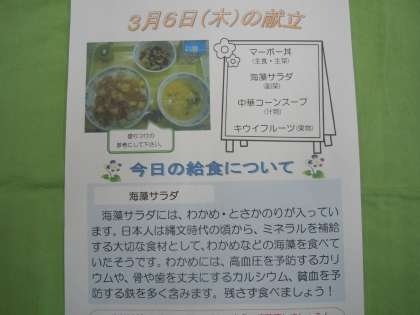 3月6日(木)の献立
マーボー丼
(主食・主菜)
海藻サラダ
(副菜)
中華コーンスープ
(汁物)
キウイフルーツ(果物)
盛りつけの
参考にして下さい。
今日の給食について
海藻サラダ
海藻サラダには、わかめ・とさかのりが入ってい
ます。日本人は縄文時代の頃から、ミネラルを補給
する大切な食材として、わかめなどの海藻を食べて
いたそうです。わかめには、高血圧を予防するカリ
ウムや、骨や歯を丈夫にするカルシウム、貧血を予
防する鉄を多く含みます。残さず食べましょう！